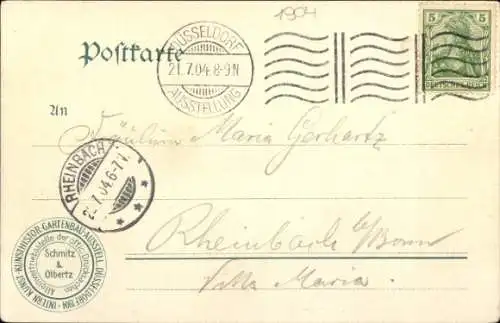 1904
Postkarte
DÜSSELDORF
21.7.04.8-9N
AUSSTELLUNG
5 5
DEUTSCHES REICH
An
Fräulein Maria Gerhartz
RHEINBACH
22.7.04.6-7V.
Rheinbach b/Bonn
Villa Maria.
INTERN. KUNST- KUNSTHISTOR. GARTENBAU-AUSSTELL. DÜSSELDORF 1904
Alleinvertriebsstelle der offiz. Drucksachen
Schmitz
&
Olbertz